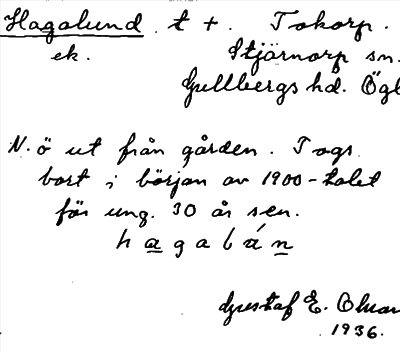 Hagalund. t +. Tokorp.
ek. Stjärnorp sn.
Gullbergs hd. Ögl
N. ö ut från gården. Togs
bort i början av 1900-talet
för ung. 30 år sen.
hagabán
Gustaf E.
1936.